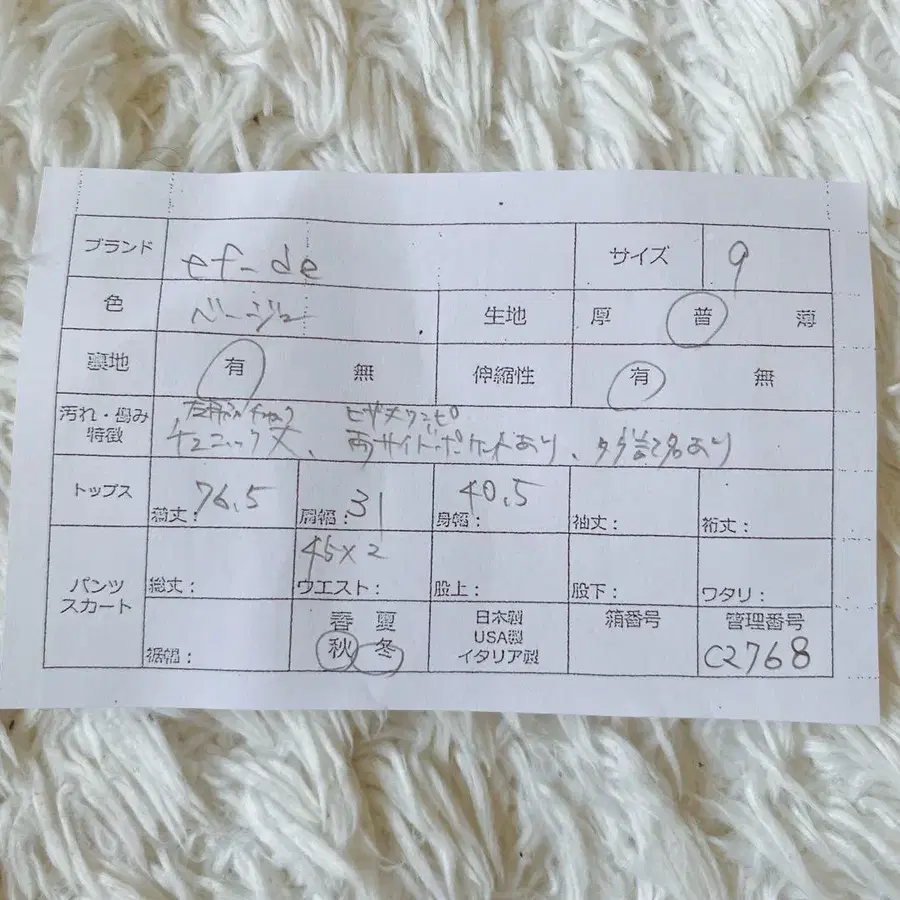 ブランド ef-de サイズ 9
色 ベージュ 生地 厚 普 薄
裏地 有 無 伸縮性 有 無
汚れ・傷み 特徴
チャック ヒザ丈ワンピ
チュニック丈、両サイドポケットあり、タグ記名あり
トップス 総丈:76.5 肩幅:31 身幅:40.5 袖丈: 裄丈:
パンツ スカート 総丈: ウエスト:45×2 股上: 股下: ワタリ:
裾幅: 春 夏 秋 冬
日本製
USA製
イタリア製
箱番号
管理番号
C2768